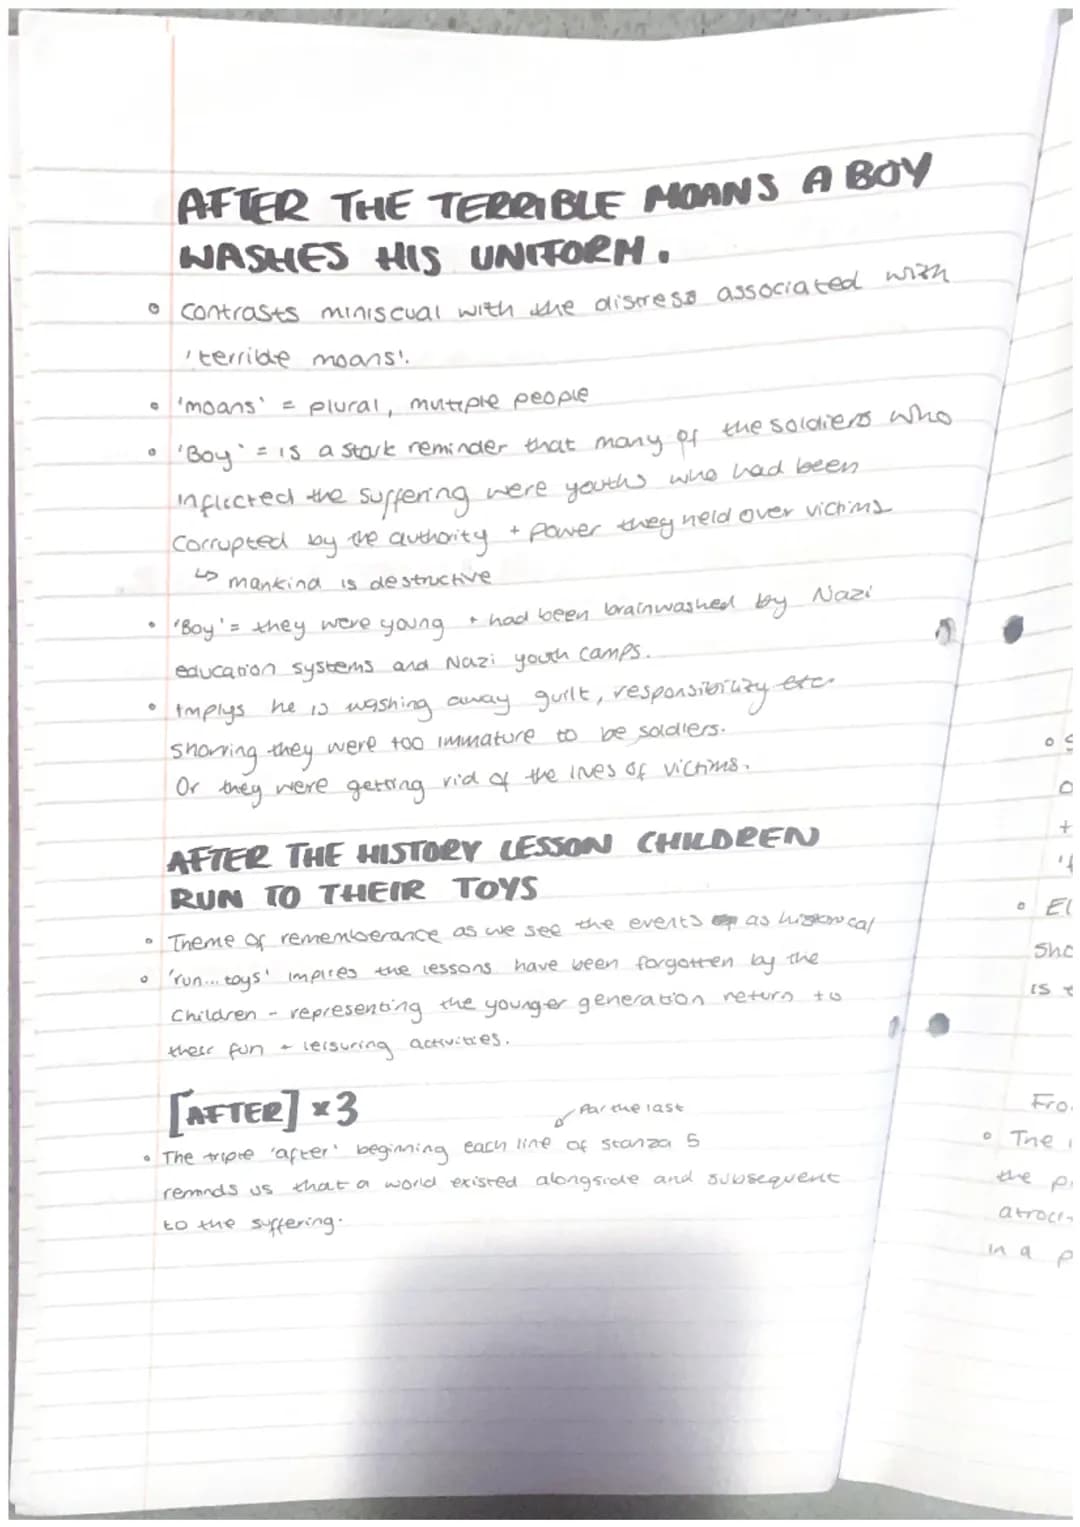 AFTER THE TERRIBLE MOANS A BOY
WASHES HIS UNIFORM.
• Contrasts miniscual with the distress associated with
'terrible moans'.
• 'moans' = plural, multiple people
• 'Boy' = is a stark reminder that many of the soldiers who
inflicted the suffering were youths who had been
corrupted by the authority + power they held over victims
↳ mankind is destructive
• 'Boy' = they were young + had been brainwashed by Nazi
education systems and Nazi youth camps.
• Implys he is washing away guilt, responsibility etc.
showing they were too immature to be soldiers.
Or they were getting rid of the lives of victims.
AFTER THE HISTORY LESSON CHILDREN
RUN TO THEIR TOYS
• Theme of rememberance as we see the events as historical
• 'run... toys' implies the lessons have been forgotten by the
children - representing the younger generation return to
their fun + leisuring activities.
[AFTER] x3
Par the last
• The triple 'after' beginning each line of stanza 5
reminds us that a world existed alongside and subsequent
to the suffering.
+
• El
Sho
is t
Fro
• The
the p
atroci
in a p